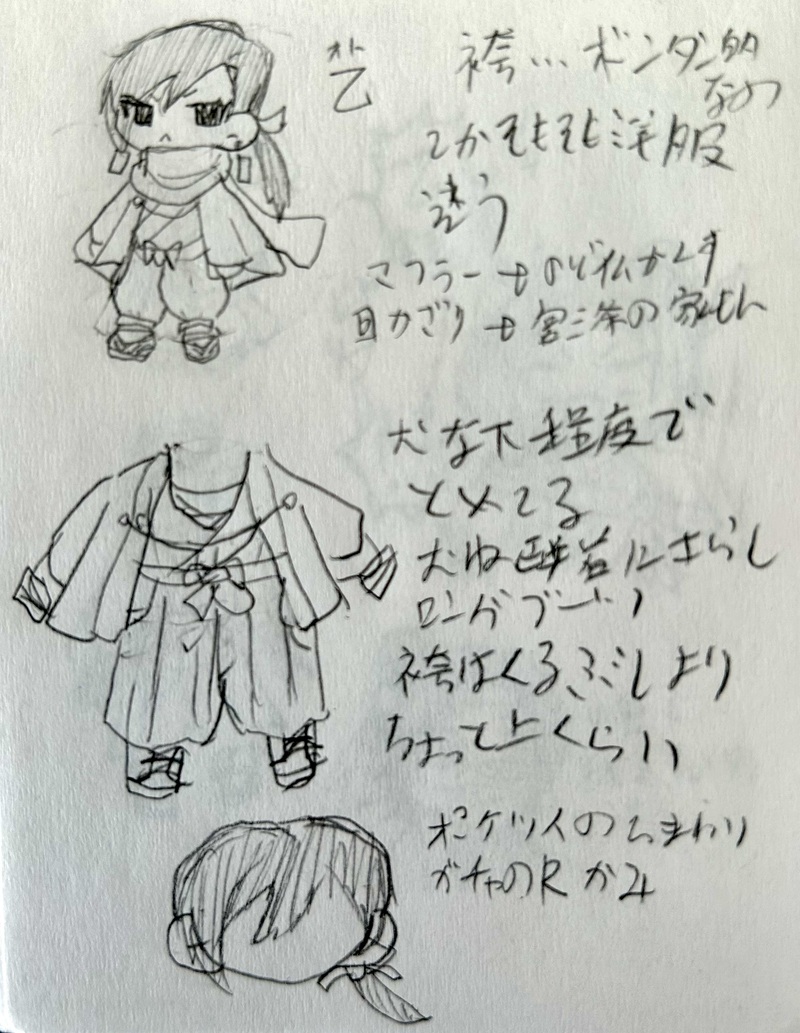 オト
乙
袴…ボンタン的
なの
てかそもそも洋服
違う
マフラー→のど仏かくす
耳かざり→宮三条の家もん
大な下程度で
とめてる
むね
にさらし
ロングブーツ
袴はくるぶしより
ちょっと上くらい
ポケツイのちまわり
ガチャのRか4